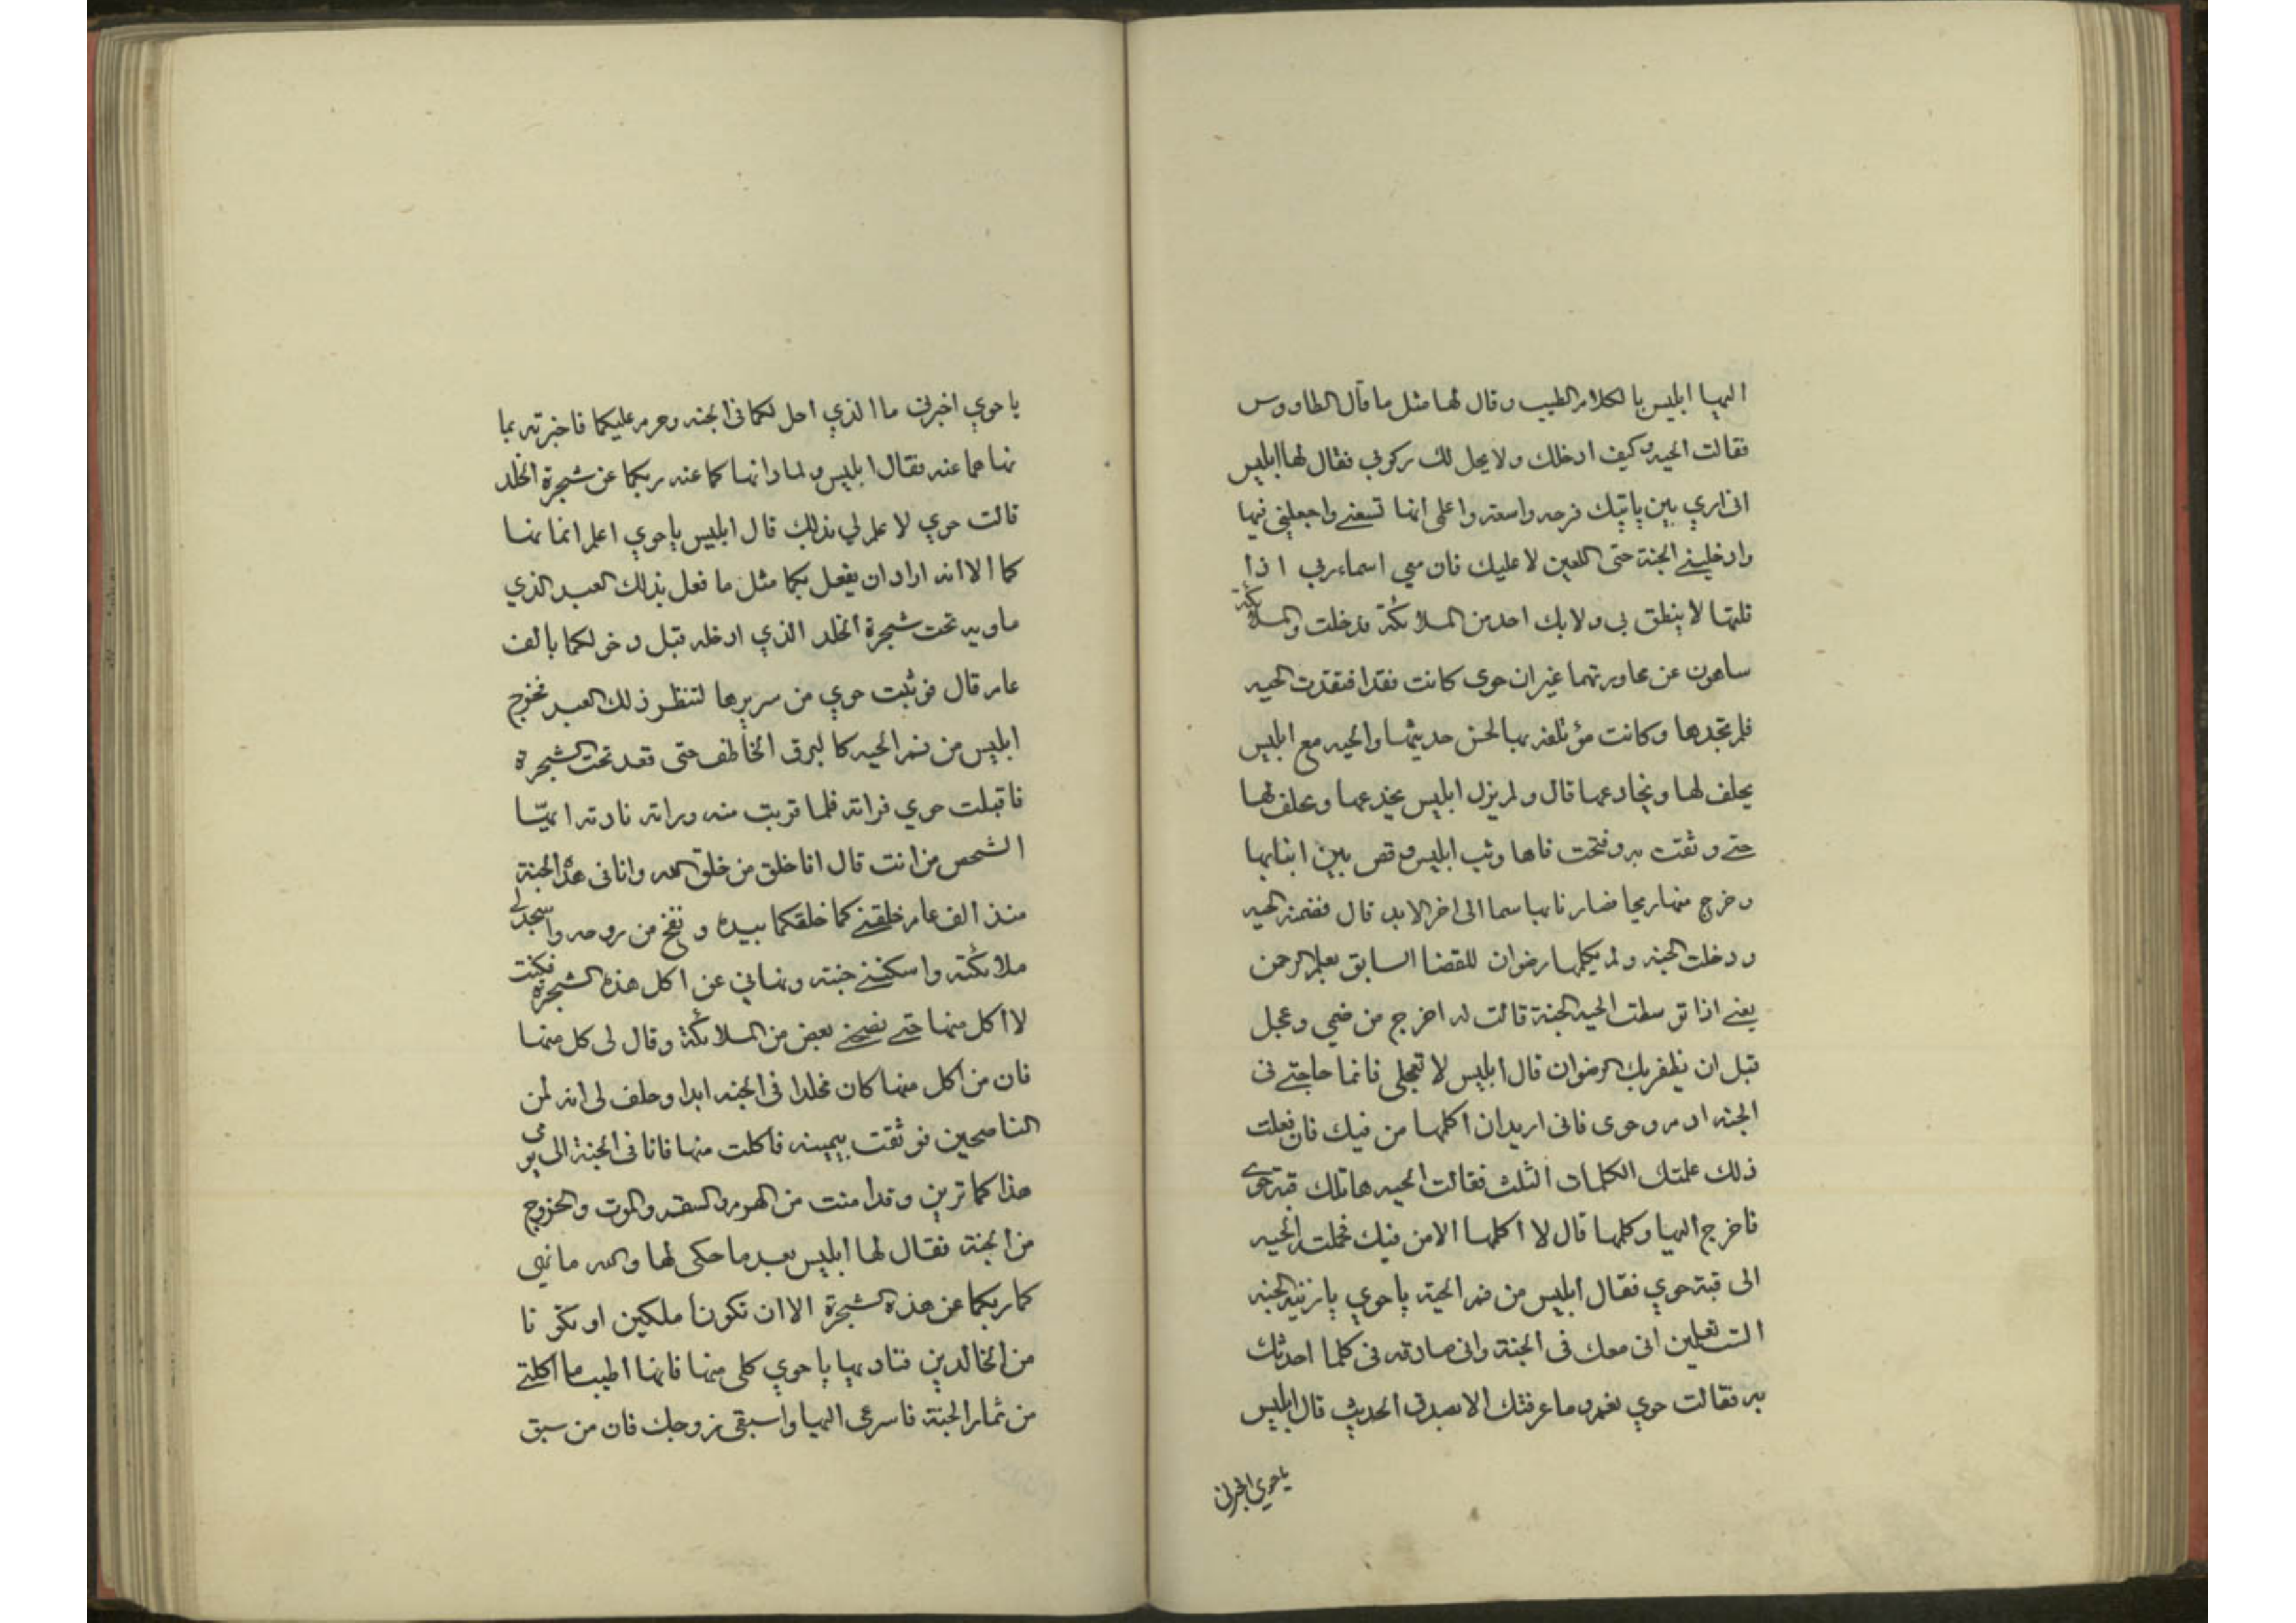 اليها ابليس بالكلام الطيب وقال لها مثل ما قال الطاووس
فقالت الحيه وكيف ادخلك ولا يحل لك ركوبي فقال لها ابليس
اني اري بين يابيك فرحه واسعة واعلمي انها تسعني واجعليني فيها
وادخليني الجنة حتى اللعين لا عليك فان معي اسماء ربي اذا
قلتها لا ينطق بي ولا بك احد من الملائكة فدخلت والملائكة
ساهون عن محاورتهما غير ان حوي كانت فقدا فتقدت الحيه
فلم تجدها وكانت مؤتلفه بها لحسن حديثها والحيه مع ابليس
يحلف لها ويخادعها قال ولم يزل ابليس يخدعها ويحلف لها
حتي وثقت به وفتحت فاها وثب ابليس وقص بين انيابها
وخرج منها ريحا فصار نابها سما الى اخر الابد قال فضمنه الحيه
ودخلت الجنه ولم يكلمها رضوان للقضا السابق بعلم الرحمن
يعني اذا توسطت الحيه الجنة قالت له اخرج من فمي وعجل
قبل ان يظفر بك الرضوان قال ابليس لا تعجلي فانما حاجتي في
الجنه ادم وحوى فاني اريد ان اكلمها من فيك فان فعلت
ذلك علمتك الكلمات الثلث فقالت الحيه هاتلك قبة حوى
فاخرج اليها وكلمها قال لا اكلمها الا من فيك فحملته الحيه
الى قبة حوي فقال ابليس من فم الحية يا حوي يا زينة الجنه
الست تعلمين اني معك في الجنة واني صادقه في كلما احدثك
به فقالت حوي نعم وما عرفتك الا بصدق الحديث قال ابليس
يا حوي اخبرني
يا حوي اخبرني ما الذي احل لكما في الجنه وحرم عليكما فاخبرته بما
نهاهما عنه فقال ابليس ولماذا نهاكما عنه ربكما عن شجرة الخلد
قالت حوي لا علم لي بذلك قال ابليس يا حوي اعلم انما نها
كما الا انه اراد ان يفعل بكما مثل ما فعل بذلك العبد الذي
ماويه تحت شجرة الخلد الذي ادخله قبل دخولكما بالف
عام قال فوثبت حوي من سريرها لتنظر ذلك العبد فخرج
ابليس من فم الحيه كالبرق الخاطف حتى قعد تحت الشجرة
فاقبلت حوي فراته فلما قربت منه وراته نادته ايها
الشخص من انت قال انا خلق من خلق الله وانا في هذه الجنة
منذ الف عام خلقني كما خلقكما بيده ونفخ من روحه واسجد لي
ملائكته واسكنني جنته ونهاني عن اكل هذه الشجرة فكنت
لا اكل منها حتي نصحني بعض من الملائكة وقال لي كل منها
فان من اكل منها كان مخلدا في الجنه ابدا وحلف لي انه لمن
الناصحين فوثقت بيمينه فاكلت منها فانا في الجنة الى يومي
هذا كما ترين وقد امنت من الهرم والسقم والموت والخروج
من الجنة فقال لها ابليس بعد ما حكى لها والله ما نهى
كما ربكما عن هذه الشجرة الا ان تكونا ملكين او تكونا
من الخالدين فناد بها يا حوي كلي منها فانها اطيب ما اكلتي
من ثمار الجنة فاسرعي اليها واسبقي زوجك فان من سبق